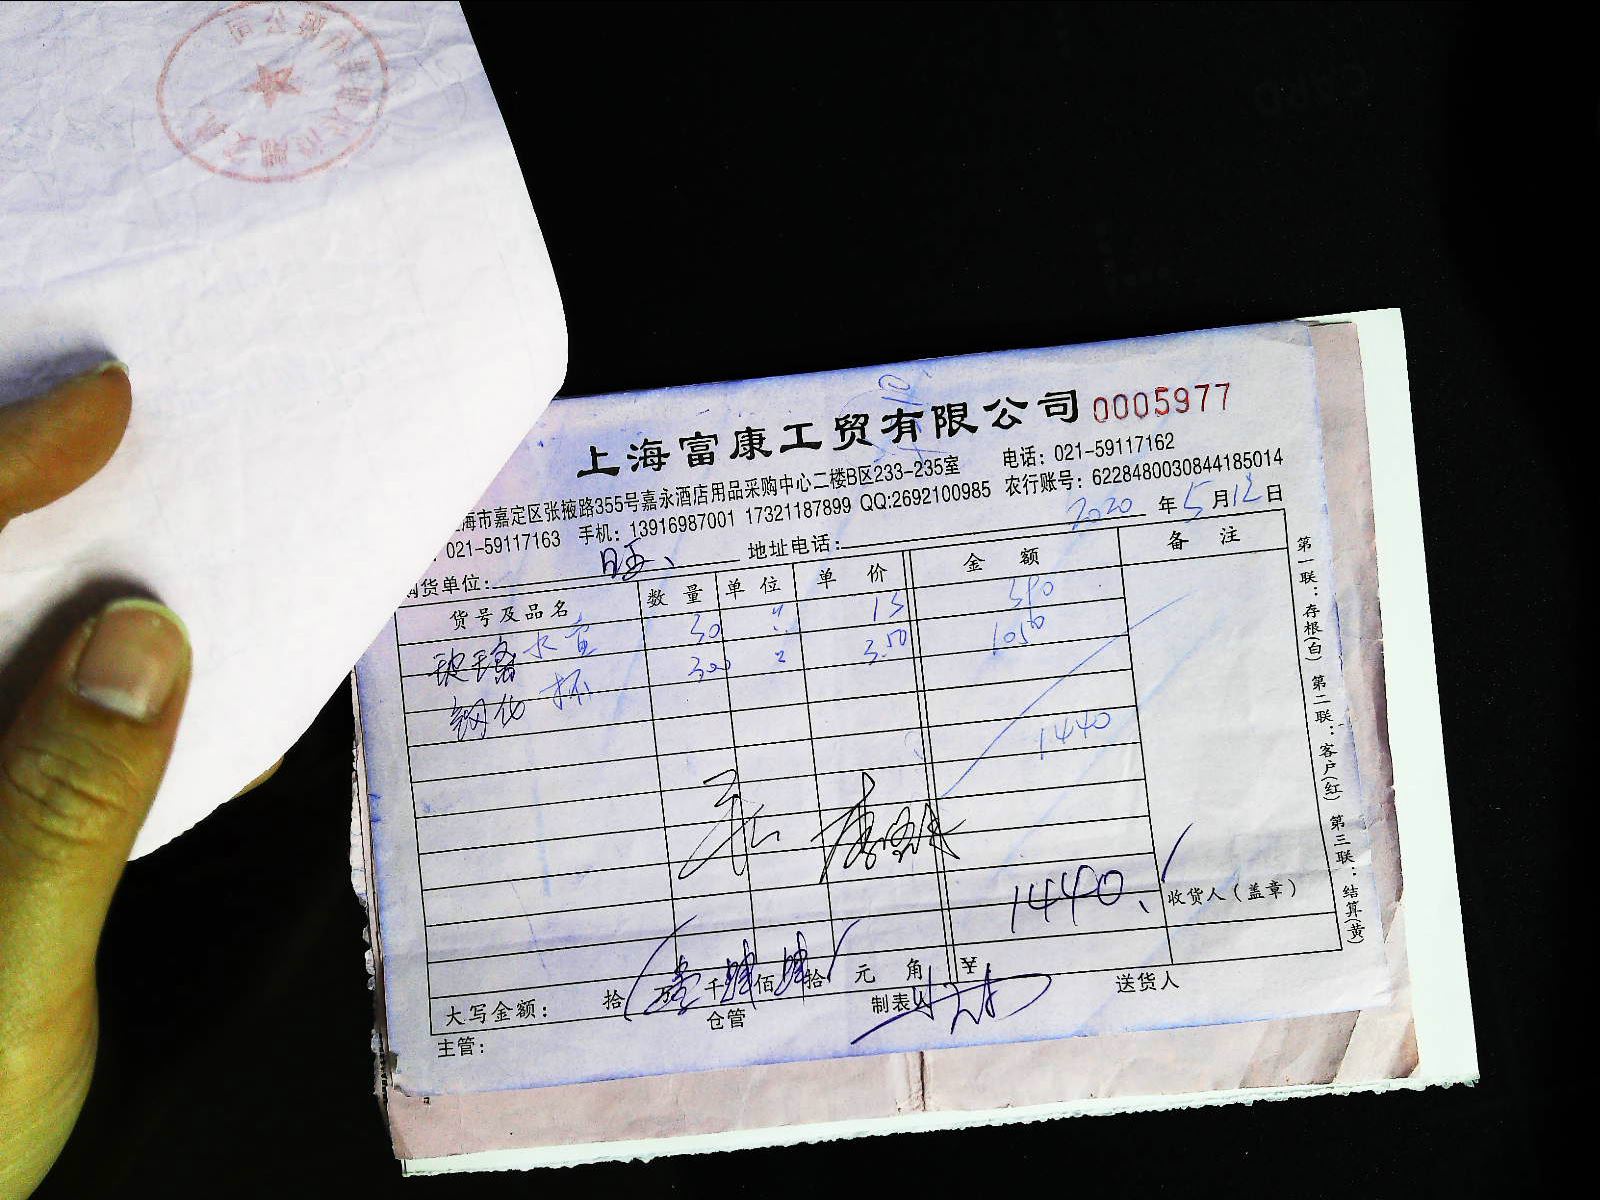 上海富康工贸有限公司 0005977
海市嘉定区张掖路355号嘉永酒店用品采购中心二楼B区233-235室 电话：021-59117162
021-59117163 手机：13916987001 17321187899 QQ:2692100985 农行账号：6228480030844185014
2020 年 5 月 12 日
购货单位： 旺、 地址电话：
货号及品名 数量 单位 单价 金额 备注
玻璃水壶 30 13 390
钢化杯 300 3.50 1050
1440
1440、 收货人（盖章）
大写金额： 拾 万壹千肆佰肆拾 元 角 ￥
主管： 仓管 制表人 送货人
第一联：存根(白) 第二联：客户(红) 第三联：结算(黄)